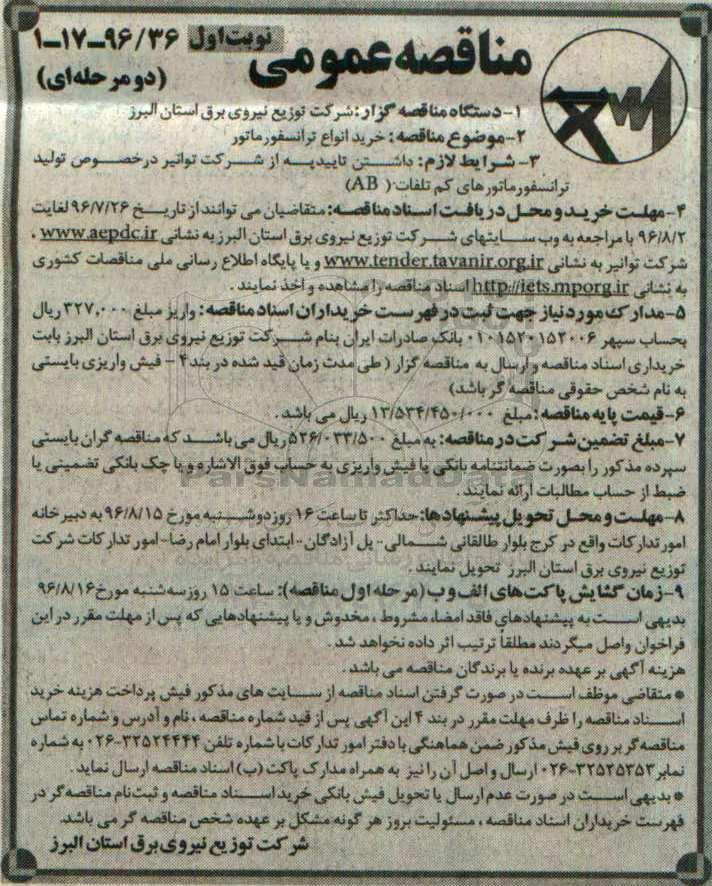 مناقصه عمومی
نوبت اول ۹۶/۳۶-۱۷-۱
(دو مرحله ای)
۱- دستگاه مناقصه گزار: شرکت توزیع نیروی برق استان البرز
۲- موضوع مناقصه: خرید انواع ترانسفورماتور
۳- شرایط لازم: داشتن تاییدیه از شرکت توانیر در خصوص تولید
ترانسفورماتورهای کم تلفات (AB)
۴- مهلت خرید و محل دریافت اسناد مناقصه: متقاضیان می توانند از تاریخ ۹۶/۷/۲۶ لغایت
۹۶/۸/۲ با مراجعه به وب سایتهای شرکت توزیع نیروی برق استان البرز به نشانی www.aepdc.ir ،
شرکت توانیر به نشانی www.tender.tavanir.org.ir و یا پایگاه اطلاع رسانی ملی مناقصات کشوری
به نشانی http://iets.mporg.ir اسناد مناقصه را مشاهده و اخذ نمایند .
۵- مدارک مورد نیاز جهت ثبت در فهرست خریداران اسناد مناقصه: واریز مبلغ ۳۲۷,۰۰۰ ریال
بحساب سپهر ۰۱۰۱۵۲۰۱۵۲۰۰۶ بانک صادرات ایران بنام شرکت توزیع نیروی برق استان البرز بابت
خریداری اسناد مناقصه و ارسال به مناقصه گزار (طی مدت زمان قید شده در بند ۴ - فیش واریزی بایستی
به نام شخص حقوقی مناقصه گر باشد)
۶- قیمت پایه مناقصه: مبلغ ۱۳/۵۳۴/۴۵۰/۰۰۰ ریال می باشد .
۷- مبلغ تضمین شرکت در مناقصه: به مبلغ ۵۲۶/۰۳۳/۵۰۰ ریال می باشد که مناقصه گران بایستی
سپرده مذکور را بصورت ضمانتنامه بانکی یا فیش واریزی به حساب فوق الاشاره و یا چک بانکی تضمینی یا
ضبط از حساب مطالبات ارائه نمایند .
۸- مهلت و محل تحویل پیشنهادها: حداکثر تا ساعت ۱۶ روز دوشنبه مورخ ۹۶/۸/۱۵ به دبیرخانه
امور تدارکات واقع در کرج بلوار طالقانی شمالی - پل آزادگان - ابتدای بلوار امام رضا - امور تدارکات شرکت
توزیع نیروی برق استان البرز تحویل نمایند .
۹- زمان گشایش پاکت های الف و ب (مرحله اول مناقصه): ساعت ۱۵ روز سه شنبه مورخ ۹۶/۸/۱۶
بدیهی است به پیشنهادهای فاقد امضاء، مشروط ، مخدوش و یا پیشنهادهایی که پس از مهلت مقرر در این
فراخوان واصل میگردند مطلقاً ترتیب اثر داده نخواهد شد .
هزینه آگهی بر عهده برنده یا برندگان مناقصه می باشد .
* متقاضی موظف است در صورت گرفتن اسناد مناقصه از سایت های مذکور فیش پرداخت هزینه خرید
اسناد مناقصه را ظرف مهلت مقرر در بند ۴ این آگهی پس از قید شماره مناقصه ، نام و آدرس و شماره تماس
مناقصه گر بر روی فیش مذکور ضمن هماهنگی با دفتر امور تدارکات با شماره تلفن ۳۲۵۲۴۴۴۴-۰۲۶ به شماره
نمابر ۳۲۵۲۵۳۵۳-۰۲۶ ارسال و اصل آن را نیز به همراه مدارک پاکت (ب) اسناد مناقصه ارسال نماید .
* بدیهی است در صورت عدم ارسال یا تحویل فیش بانکی خرید اسناد مناقصه و ثبت نام مناقصه گر در
فهرست خریداران اسناد مناقصه ، مسئولیت بروز هر گونه مشکل بر عهده شخص مناقصه گر می باشد.
شرکت توزیع نیروی برق استان البرز
ParsNamadData